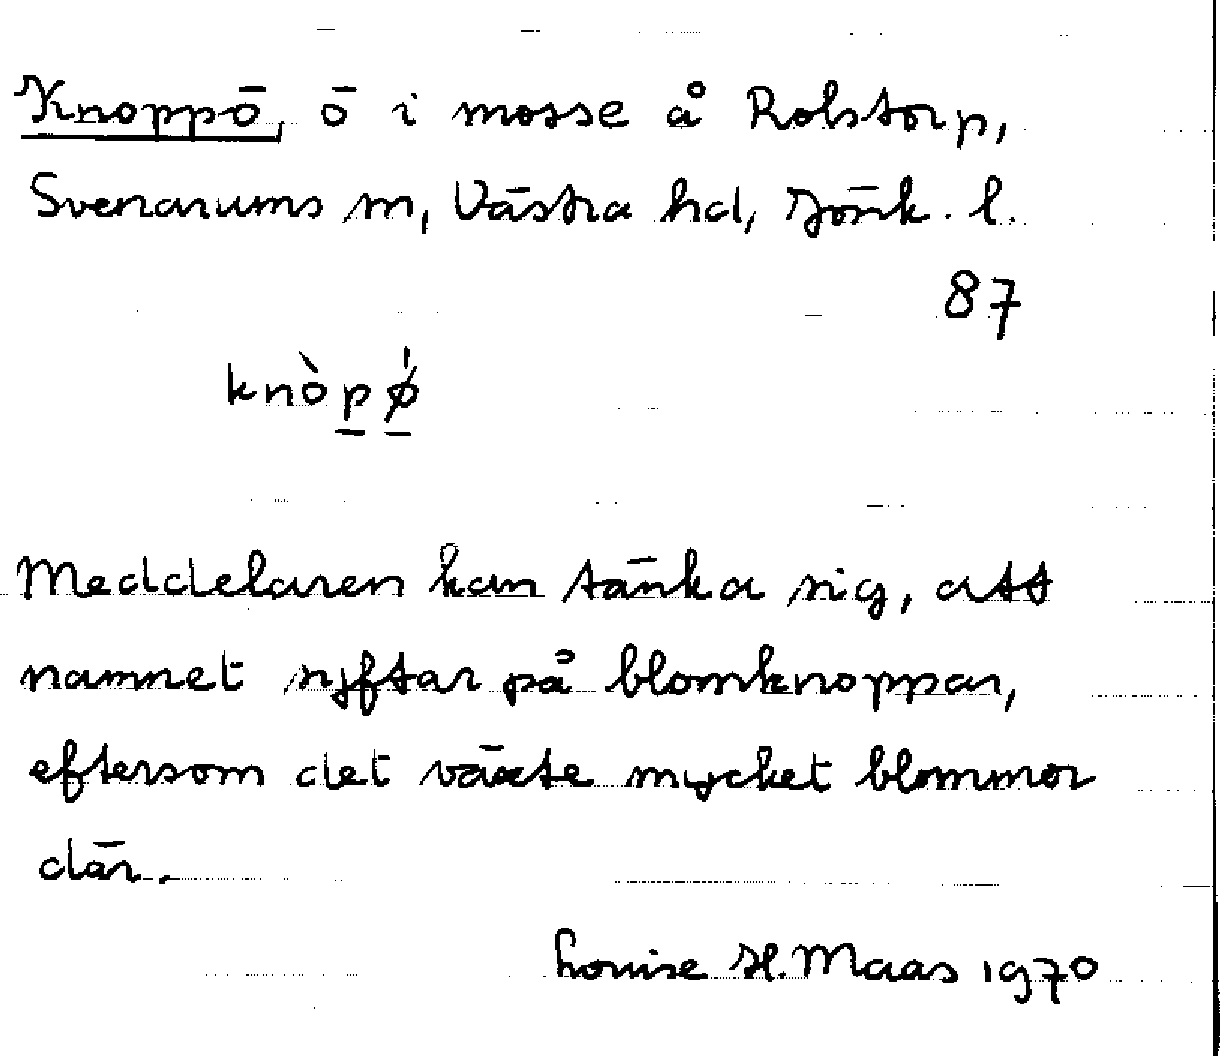 Knoppö, ö i mosse å Rolstorp,
Svenarums sn, Västra hd, Jönk. l.
87
knòp̲ǿ̲
Meddelaren kan tänka sig, att
namnet syftar på blomknoppar,
eftersom det växte mycket blommor
där.
Louise H. Maas 1970